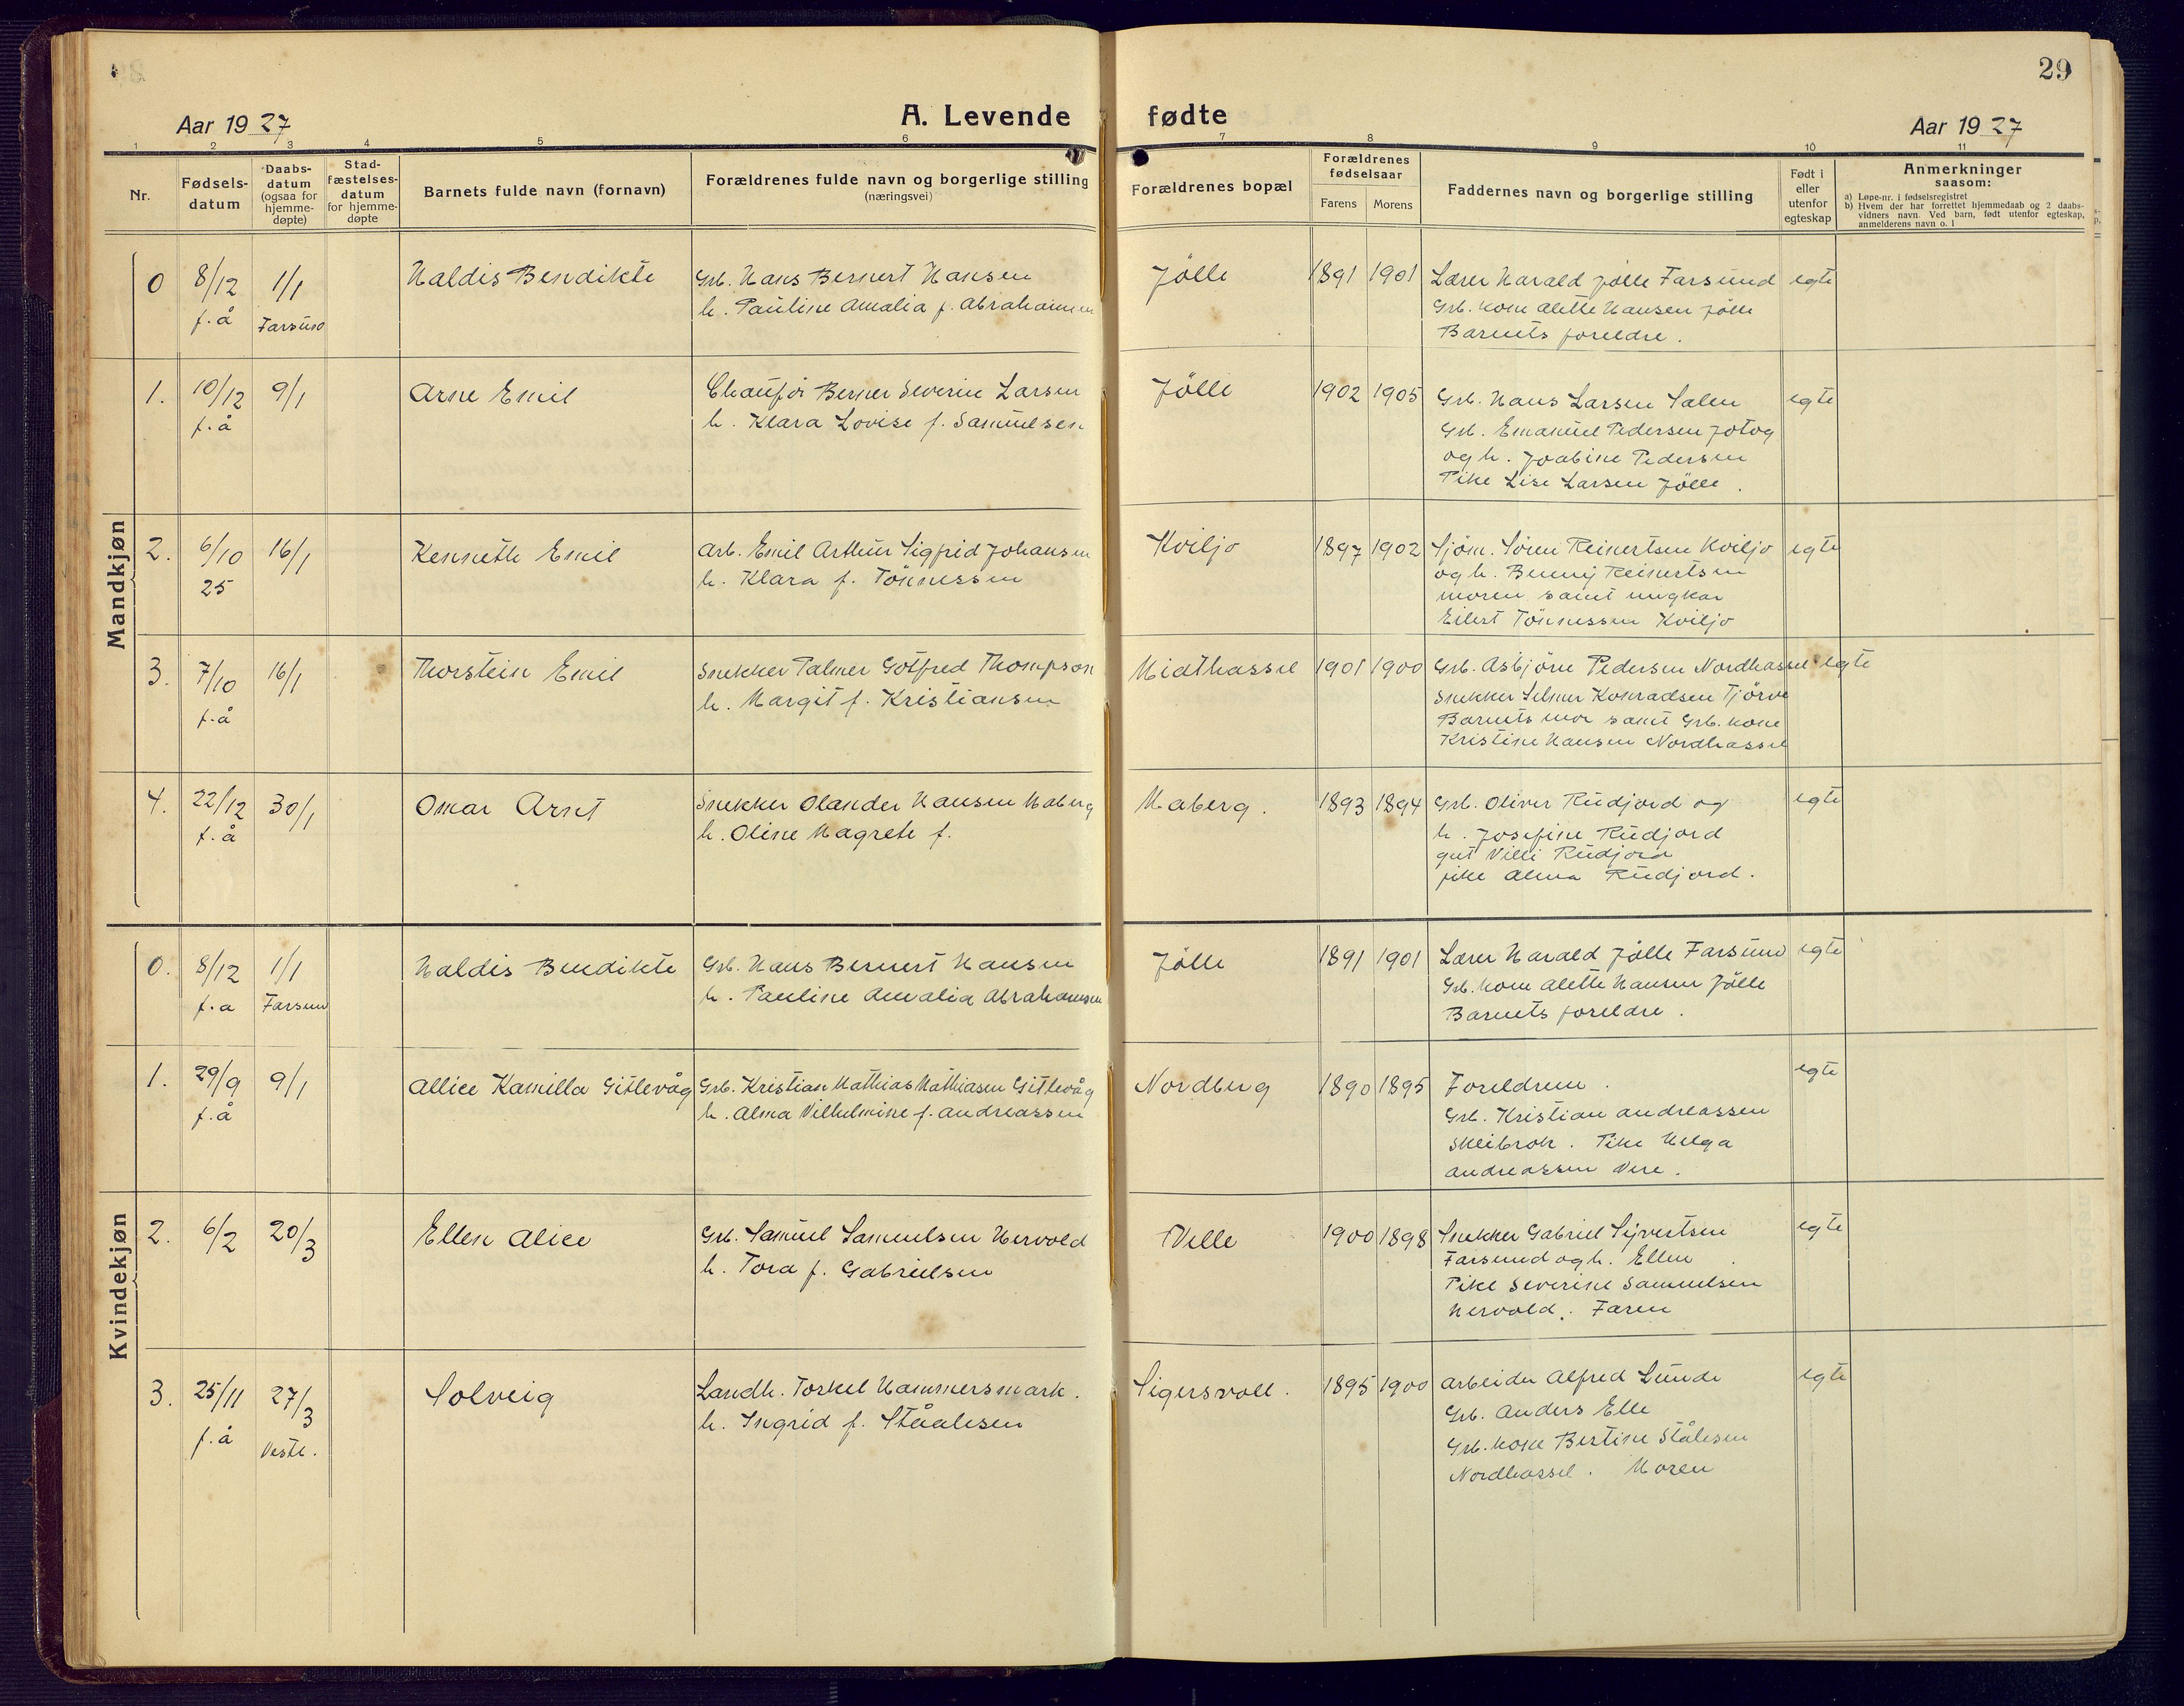 29
A. Levende fødte
Aar 1927
Aar 1927
1 2 3 4 5 6 7 8 9 10 11
Nr.
Fødsels-
datum
Daabs-
datum
(ogsaa for
hjemme-
døpte)
Stad-
fæstelses-
datum
for hjemme-
døpte
Barnets fulde navn (fornavn)
Forældrenes fulde navn og borgerlige stilling
(næringsvei)
Forældrenes bopæl
Forældrenes
fødselsaar
Farens Morens
Faddernes navn og borgerlige stilling
Født i
eller
utenfor
egteskap
Anmerkninger
saasom:
a) Løpe-nr. i fødselsregistret
b) Hvem der har forrettet hjemmedaab og 2 daabs-
vidners navn. Ved barn, født utenfor egteskap,
anmelderens navn o. l
Mandkjøn
0 8/12 f.å
1/1 Farsund
Haldis Bendikte
Grb. Hans Bernert Hansen
h. Pauline Amalia f. Abrahamsen
Jölle
1891 1901
Lærer Harald Jölle Farsund
Grb. kone Alette Hansen Jölle
Barnets foreldre.
egte
1. 10/12 f.å
9/1
Arne Emil
Chauför Berner Severin Larsen
h. Klara Lovise f. Samuelsen
Jölle
1902 1905
Grb. Hans Larsen Salen
Grb. Emanuel Pedersen Jotog
og h. Joabine Pedersen
Pike Lise Larsen Jölle.
egte
2. 6/10 25
16/1
Kenneth Emil
Arb. Emil Arthur Sigfrid Johansen
h. Klara f. Tönnessen
Kviljo
1897 1902
Sjöm. Sören Reinertsen Kviljo
og h. Benny Reinertsen
moren samt ungkar
Eilert Tönnessen Kviljo
egte
3. 7/10 f.å
16/1
Thorstein Emil
Snekker Palmer Gotfred Thompson
h. Margit f. Kristiansen
Midthassel
1901 1900
Grb. Asbjörn Pedersen Nordhassel
Snekker Selmer Konradsen Tjörve
Barnets mor samt Grb. kone
Kristine Hansen Nordhassel
egte
4. 22/12 f.å
30/1
Omar Arnt
Snekker Olander Hansen Haberg
h. Oline Magrete f.
Haberg.
1893 1894
Grb. Oliver Rudjord og
h. Josefine Rudjord
gut Villi Rudjord
pike Alma Rudjord.
egte
Kvindekjøn
0. 8/12 f.a
1/1 Farsund
Haldis Bendikte
Grb. Hans Bernert Hansen
h. Pauline Amalia Abrahamsen
Jölle
1891 1901
Lærer Harald Jölle Farsund
Grb. kone Alette Hansen Jölle
Barnets foreldre.
egte
1. 29/9 f.å
9/1
Allice Kamilla Gitlevåg
Grb. Kristian Mathias Mathiasen Gitlevåg
h. Alma Vilhelmine f. Andreassen
Nordberg
1890 1895
Foreldrene.
Grb. Kristian Andreassen
Skeibrok. Pike Helga
Andreassen Vere.
egte
2. 6/2
20/3
Ellen Alice
Grb. Samuel Samuelsen Hervold
h. Tora f. Gabrielsen
Velle
1900 1898
Snekker Gabriel Sejvertsen
Farsund og h. Ellen
Pike Severine Samuelsen
Hervold. Faren
egte
3. 25/11 f.å
27/3 Vestb.
Solveig
Landh. Torkel Hammersmark.
h. Ingrid f. Ståalesen
Sigersvoll.
1895 1900
Arbeider Alfred Lunde
Grb. Anders Elle
Grb. kone Bertine Stålesen
Nordhassel. Moren
egte